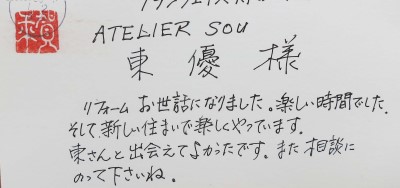 ATELIER SOU
東 優 様
リフォーム お世話になりました。楽しい時間でした。
そして新しい住まいで楽しくやっています。
東さんと出会えてよかったです。また相談に
のって下さいね。